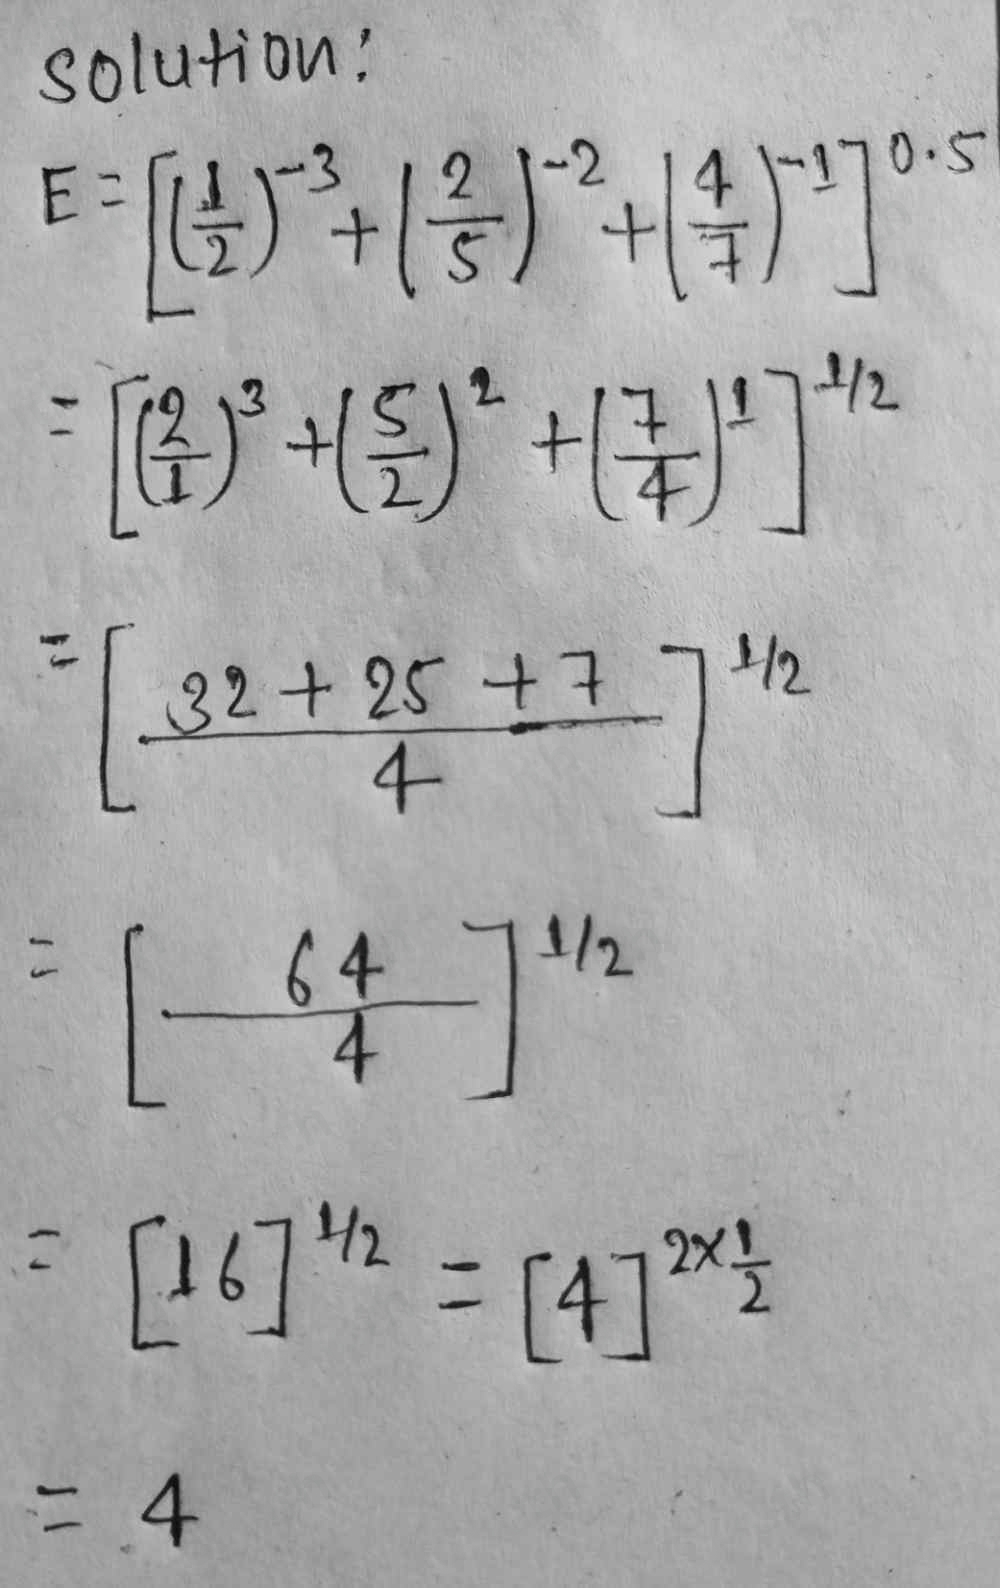 solution:
E = [(1/2)^-3 + (2/5)^-2 + (4/7)^-1]^0.5
= [(2/1)^3 + (5/2)^2 + (7/4)^1]^1/2
= [(32 + 25 + 7)/4]^1/2
= [64/4]^1/2
= [16]^1/2 = [4]^2×1/2
= 4